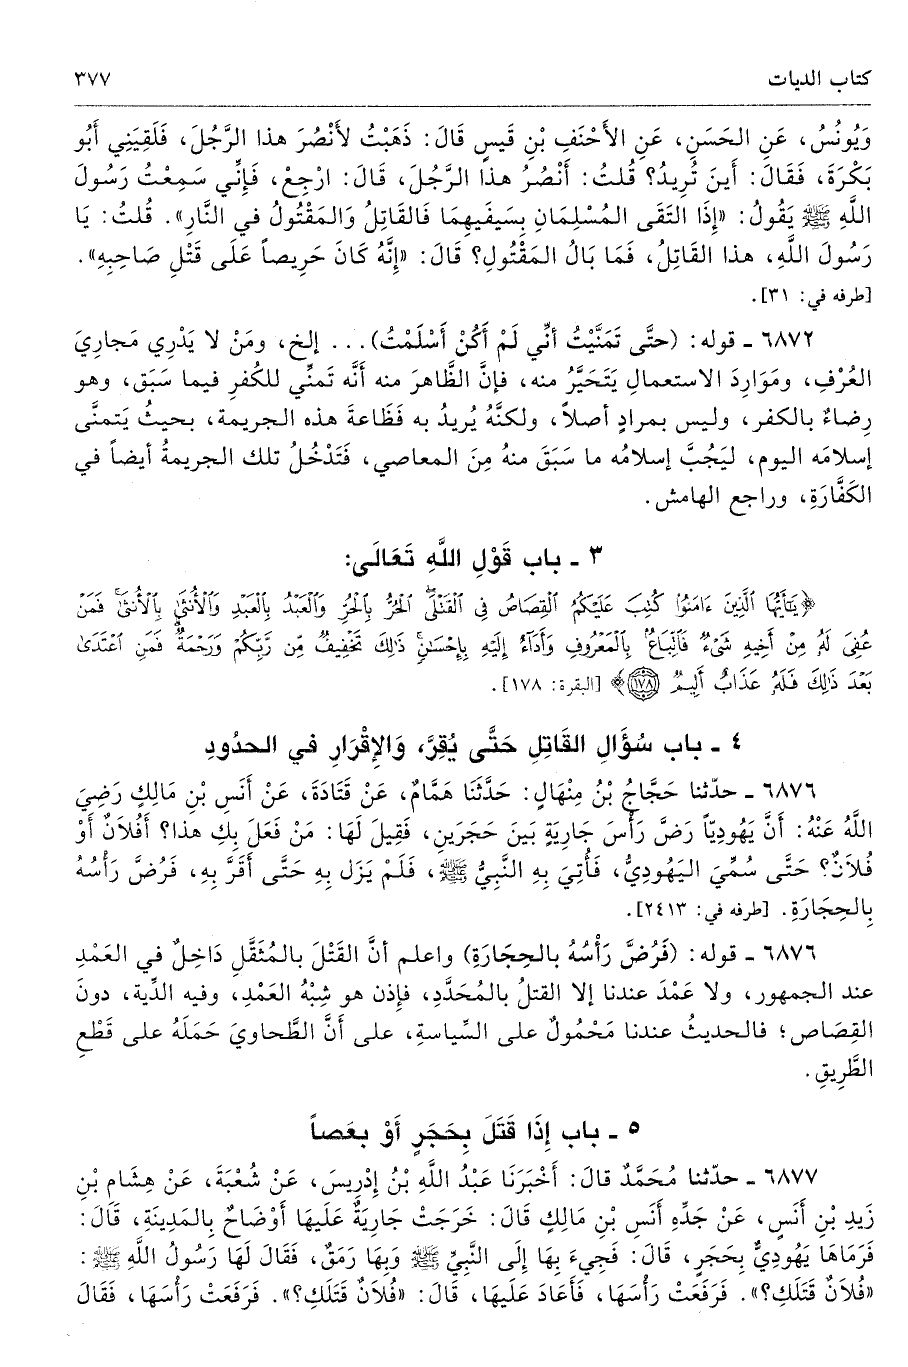 كتاب الديات ٣٧٧
وَيُونُسُ، عَنِ الحَسَنِ، عَنِ الأَحْنَفِ بْنِ قَيسٍ قَالَ: ذَهَبْتُ لأَنْصُرَ هذا الرَّجُلَ، فَلَقِيَنِي أَبُو
بَكْرَةَ، فَقَالَ: أَينَ تُرِيدُ؟ قُلتُ: أَنْصُرُ هذا الرَّجُلَ، قَالَ: ارْجِعْ، فَإِنِّي سَمِعْتُ رَسُولَ
اللَّهِ ﷺ يَقُولُ: «إِذَا التَقَى المُسْلِمَانِ بِسَيفَيهِمَا فَالقَاتِلُ وَالمَقْتُولُ في النَّارِ». قُلتُ: يَا
رَسُولَ اللَّهِ، هذا القَاتِلُ، فَمَا بَالُ المَقْتُولِ؟ قَالَ: «إِنَّهُ كَانَ حَرِيصاً عَلَى قَتْلِ صَاحِبِهِ».
[طرفه في: ٣١].
٦٨٧٢ ـ قوله: (حتَّى تَمَنَّيْتُ أنِّي لَمْ أَكُنْ أَسْلَمْتُ)... إلخ، ومَنْ لا يَدْرِي مَجارِيَ
العُرْفِ، ومَوَارِدَ الاستعمالِ يَتَحَيَّرُ منه، فإنَّ الظَّاهرَ منه أنَّه تَمنِّي للكُفرِ فيما سَبَق، وهو
رِضاءٌ بالكفر، وليس بمرادٍ أصلاً، ولكنَّهُ يُريدُ به فَظَاعةَ هذه الجريمة، بحيثُ يَتمنَّى
إسلامَه اليوم، ليَجُبَّ إسلامُه ما سَبَقَ منهُ مِنَ المعاصي، فَتَدْخُلُ تلك الجريمةُ أيضاً في
الكَفَّارَةِ، وراجع الهامش.
٣ ـ باب قَوْلِ اللَّهِ تَعَالَى:
﴿يَٰٓأَيُّهَا ٱلَّذِينَ ءَامَنُوا۟ كُتِبَ عَلَيْكُمُ ٱلْقِصَاصُ فِى ٱلْقَتْلَى ٱلْحُرُّ بِٱلْحُرِّ وَٱلْعَبْدُ بِٱلْعَبْدِ وَٱلْأُنثَىٰ بِٱلْأُنثَىٰ فَمَنْ
عُفِىَ لَهُۥ مِنْ أَخِيهِ شَىْءٌ فَٱتِّبَاعٌۢ بِٱلْمَعْرُوفِ وَأَدَآءٌ إِلَيْهِ بِإِحْسَٰنٍ ذَٰلِكَ تَخْفِيفٌ مِّن رَّبِّكُمْ وَرَحْمَةٌ فَمَنِ ٱعْتَدَىٰ
بَعْدَ ذَٰلِكَ فَلَهُۥ عَذَابٌ أَلِيمٌ ١٧٨﴾ [البقرة: ١٧٨].
٤ ـ باب سُؤَالِ القَاتِلِ حَتَّى يُقِرَّ، وَالإِقْرَارِ في الحدُودِ
٦٨٧٦ ـ حدّثنا حَجَّاجُ بْنُ مِنْهَالٍ: حَدَّثَنَا هَمَّامٌ، عَنْ قَتَادَةَ، عَنْ أَنَسِ بْنِ مَالِكٍ رَضِيَ
اللَّهُ عَنْهُ: أَنَّ يَهُودِيّاً رَضَّ رَأْسَ جَارِيَةٍ بَينَ حَجَرَينِ، فَقِيلَ لَهَا: مَنْ فَعَلَ بِكِ هذا؟ أَفُلاَنٌ أَوْ
فُلاَنٌ؟ حَتَّى سُمِّيَ اليَهُودِيُّ، فَأُتِيَ بِهِ النَّبِيُّ ﷺ، فَلَمْ يَزَل بِهِ حَتَّى أَقَرَّ بِهِ، فَرُضَّ رَأْسُهُ
بِالحِجَارَةِ. [طرفه في: ٢٤١٣].
٦٨٧٦ ـ قوله: (فَرُضَّ رَأْسُهُ بالحِجَارَةِ) واعلم أنَّ القَتْلَ بالمُثَقَّلِ دَاخِلٌ في العَمْدِ
عند الجمهور، ولا عَمْدَ عندنا إلا القتلُ بالمُحَدَّدِ، فإذن هو شِبْهُ العَمْدِ، وفيه الدِّية، دونَ
القِصَاص؛ فالحديثُ عندنا مَحْمُولٌ على السِّياسةِ، على أنَّ الطَّحاويَ حَمَلَهُ على قَطْعِ
الطَّرِيقِ.
٥ ـ باب إِذَا قَتَلَ بِحَجَرٍ أَوْ بعَصاً
٦٨٧٧ ـ حدّثنا مُحَمَّدٌ قالَ: أَخْبَرَنَا عَبْدُ اللَّهِ بْنُ إِدْرِيسَ، عَنْ شُعْبَةَ، عَنْ هِشَام بْنِ
زَيدِ بْنِ أَنَسٍ، عَنْ جَدِّهِ أَنَسِ بْنِ مَالِكٍ قَالَ: خَرَجَتْ جَارِيَةٌ عَلَيهَا أَوْضَاحٌ بِالمَدِينَةِ، قَالَ:
فَرَمَاهَا يَهُودِيٌّ بِحَجَرٍ، قَالَ: فَجِيءَ بِهَا إِلَى النَّبِيِّ ﷺ وَبِهَا رَمَقٌ، فَقَالَ لَهَا رَسُولُ اللَّهِ ﷺ:
«فُلاَنٌ قَتَلَكِ؟». فَرَفَعَتْ رَأْسَهَا، فَأَعَادَ عَلَيهَا، قَالَ: «فُلاَنٌ قَتَلَكِ؟». فَرَفَعَتْ رَأْسَهَا، فَقَالَ